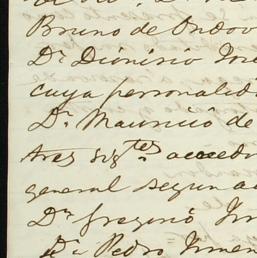 Bruno de Ondov
Dn Dionisio José
cuya personalid
Dn Mauricio de
tres sigtes accedi
general segun a
Dn Gregorio
Dn Pedro Jimen